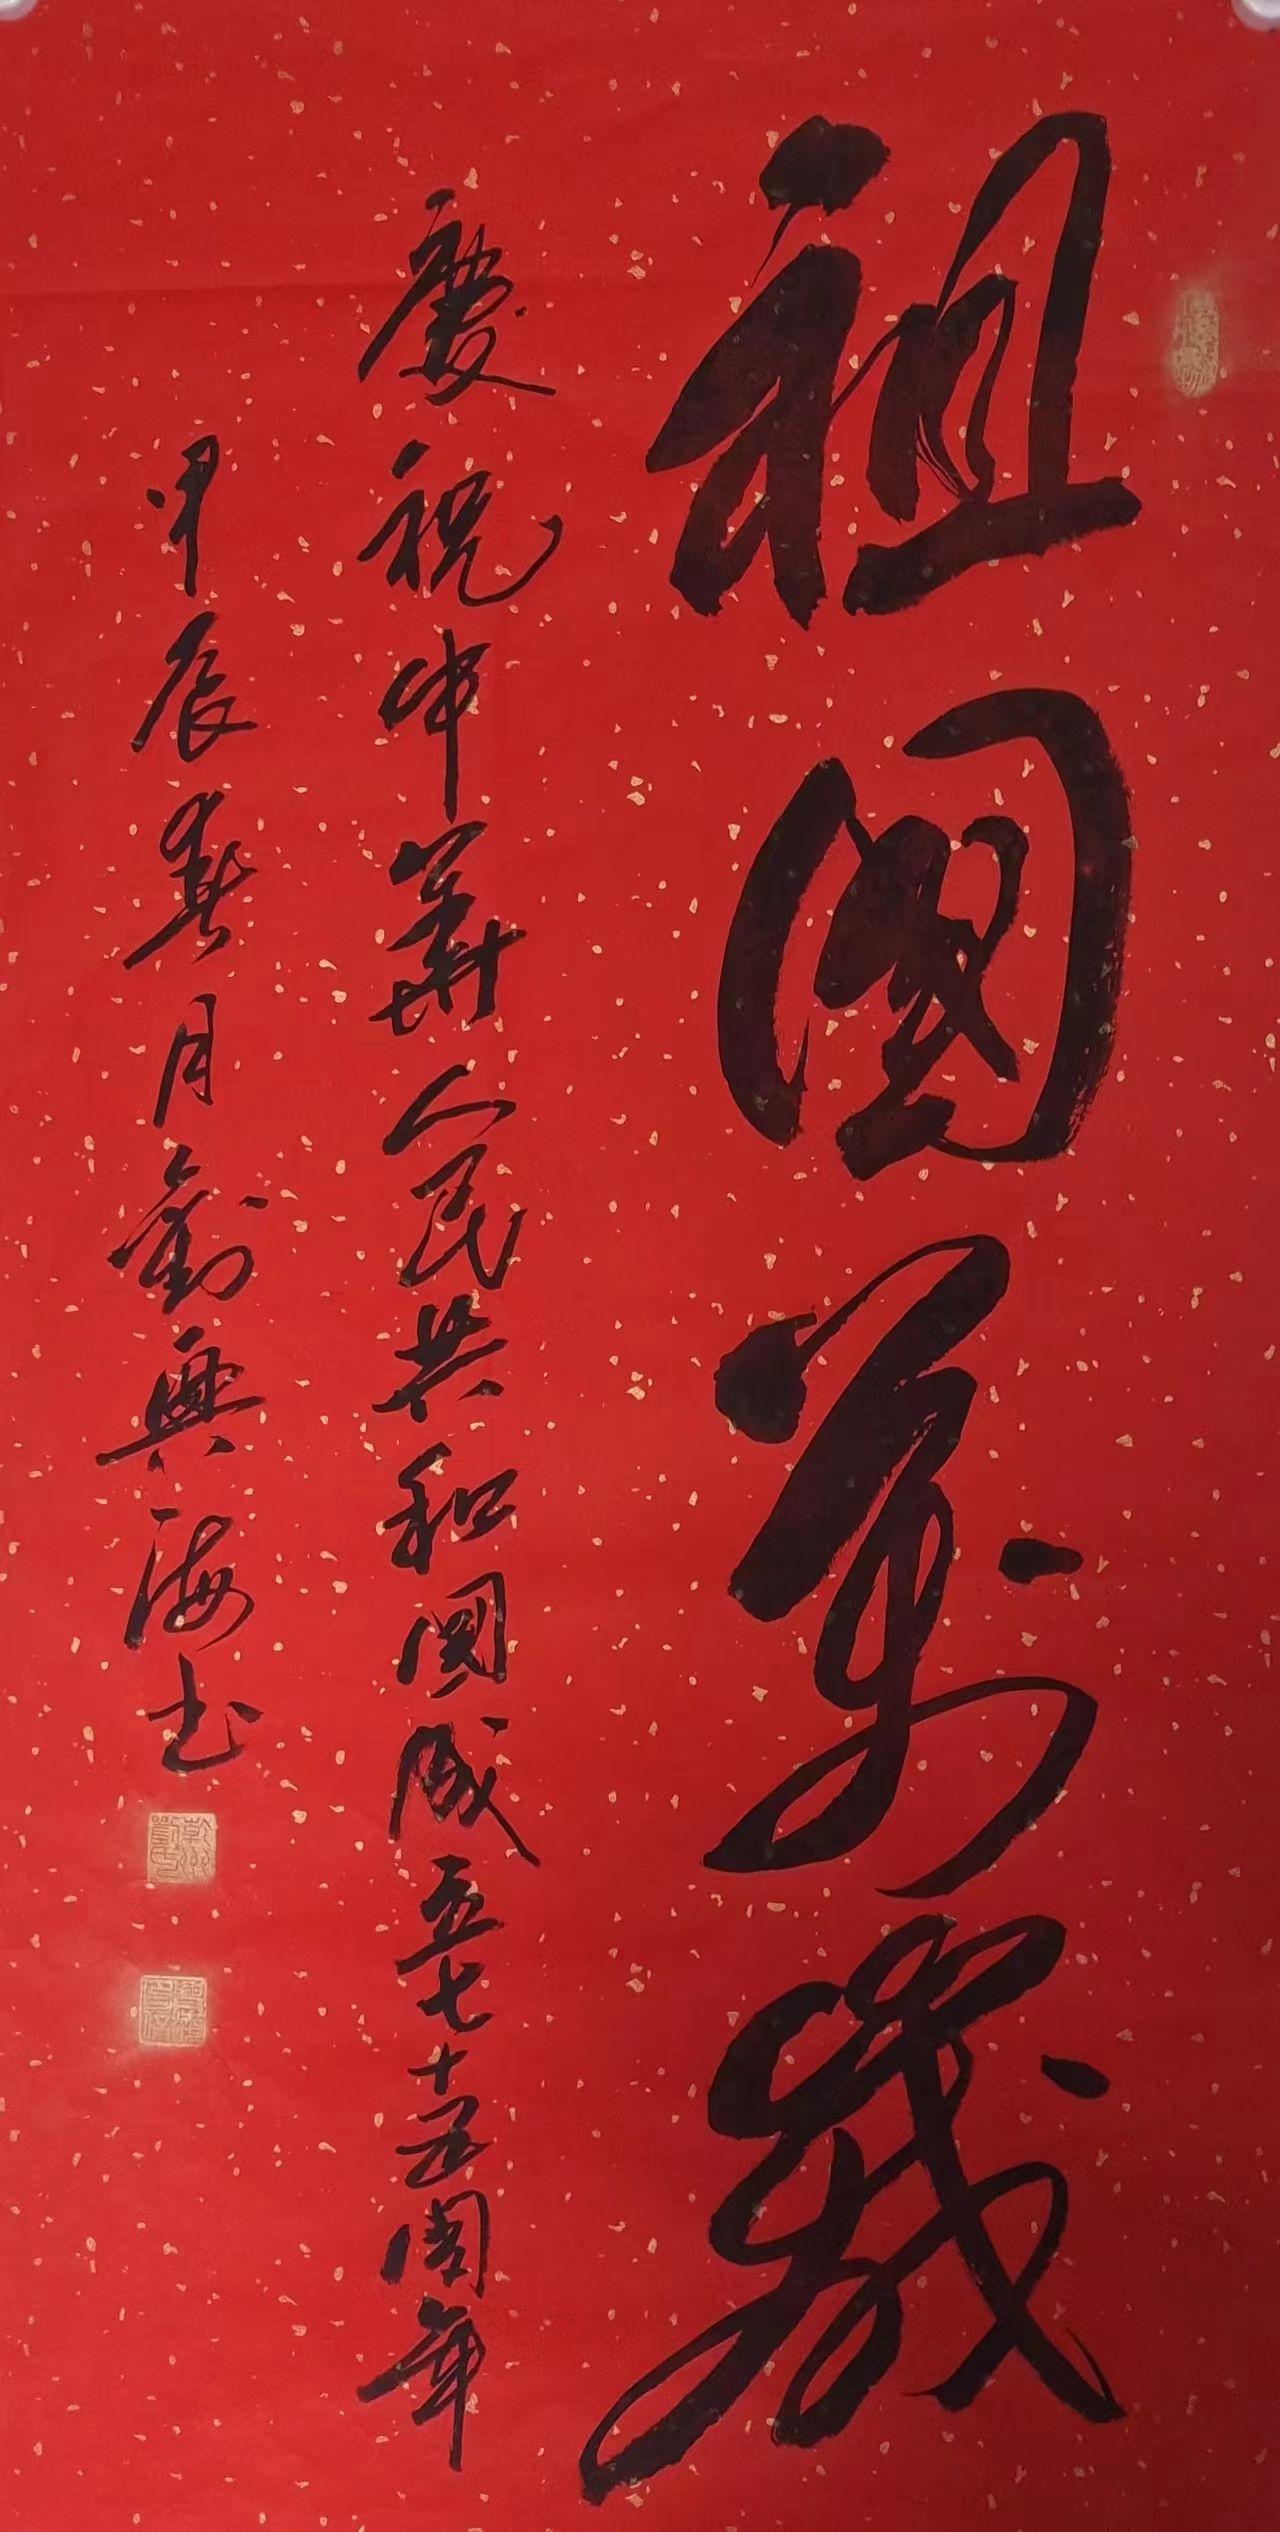 祖國萬歲
慶祝中華人民共和國成立七十五周年
甲辰春月劉興海書